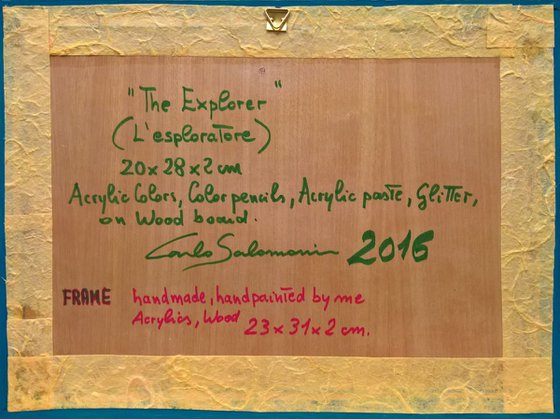 "The Explorer"
(L'esploratore)
20x28x2 cm
Acrylic Colors, Color pencils, Acrylic paste, Glitter,
on Wood board.
Carlo Salomoni 2016
FRAME handmade, handpainted by me
Acrylics, Wood 23x31x2 cm.